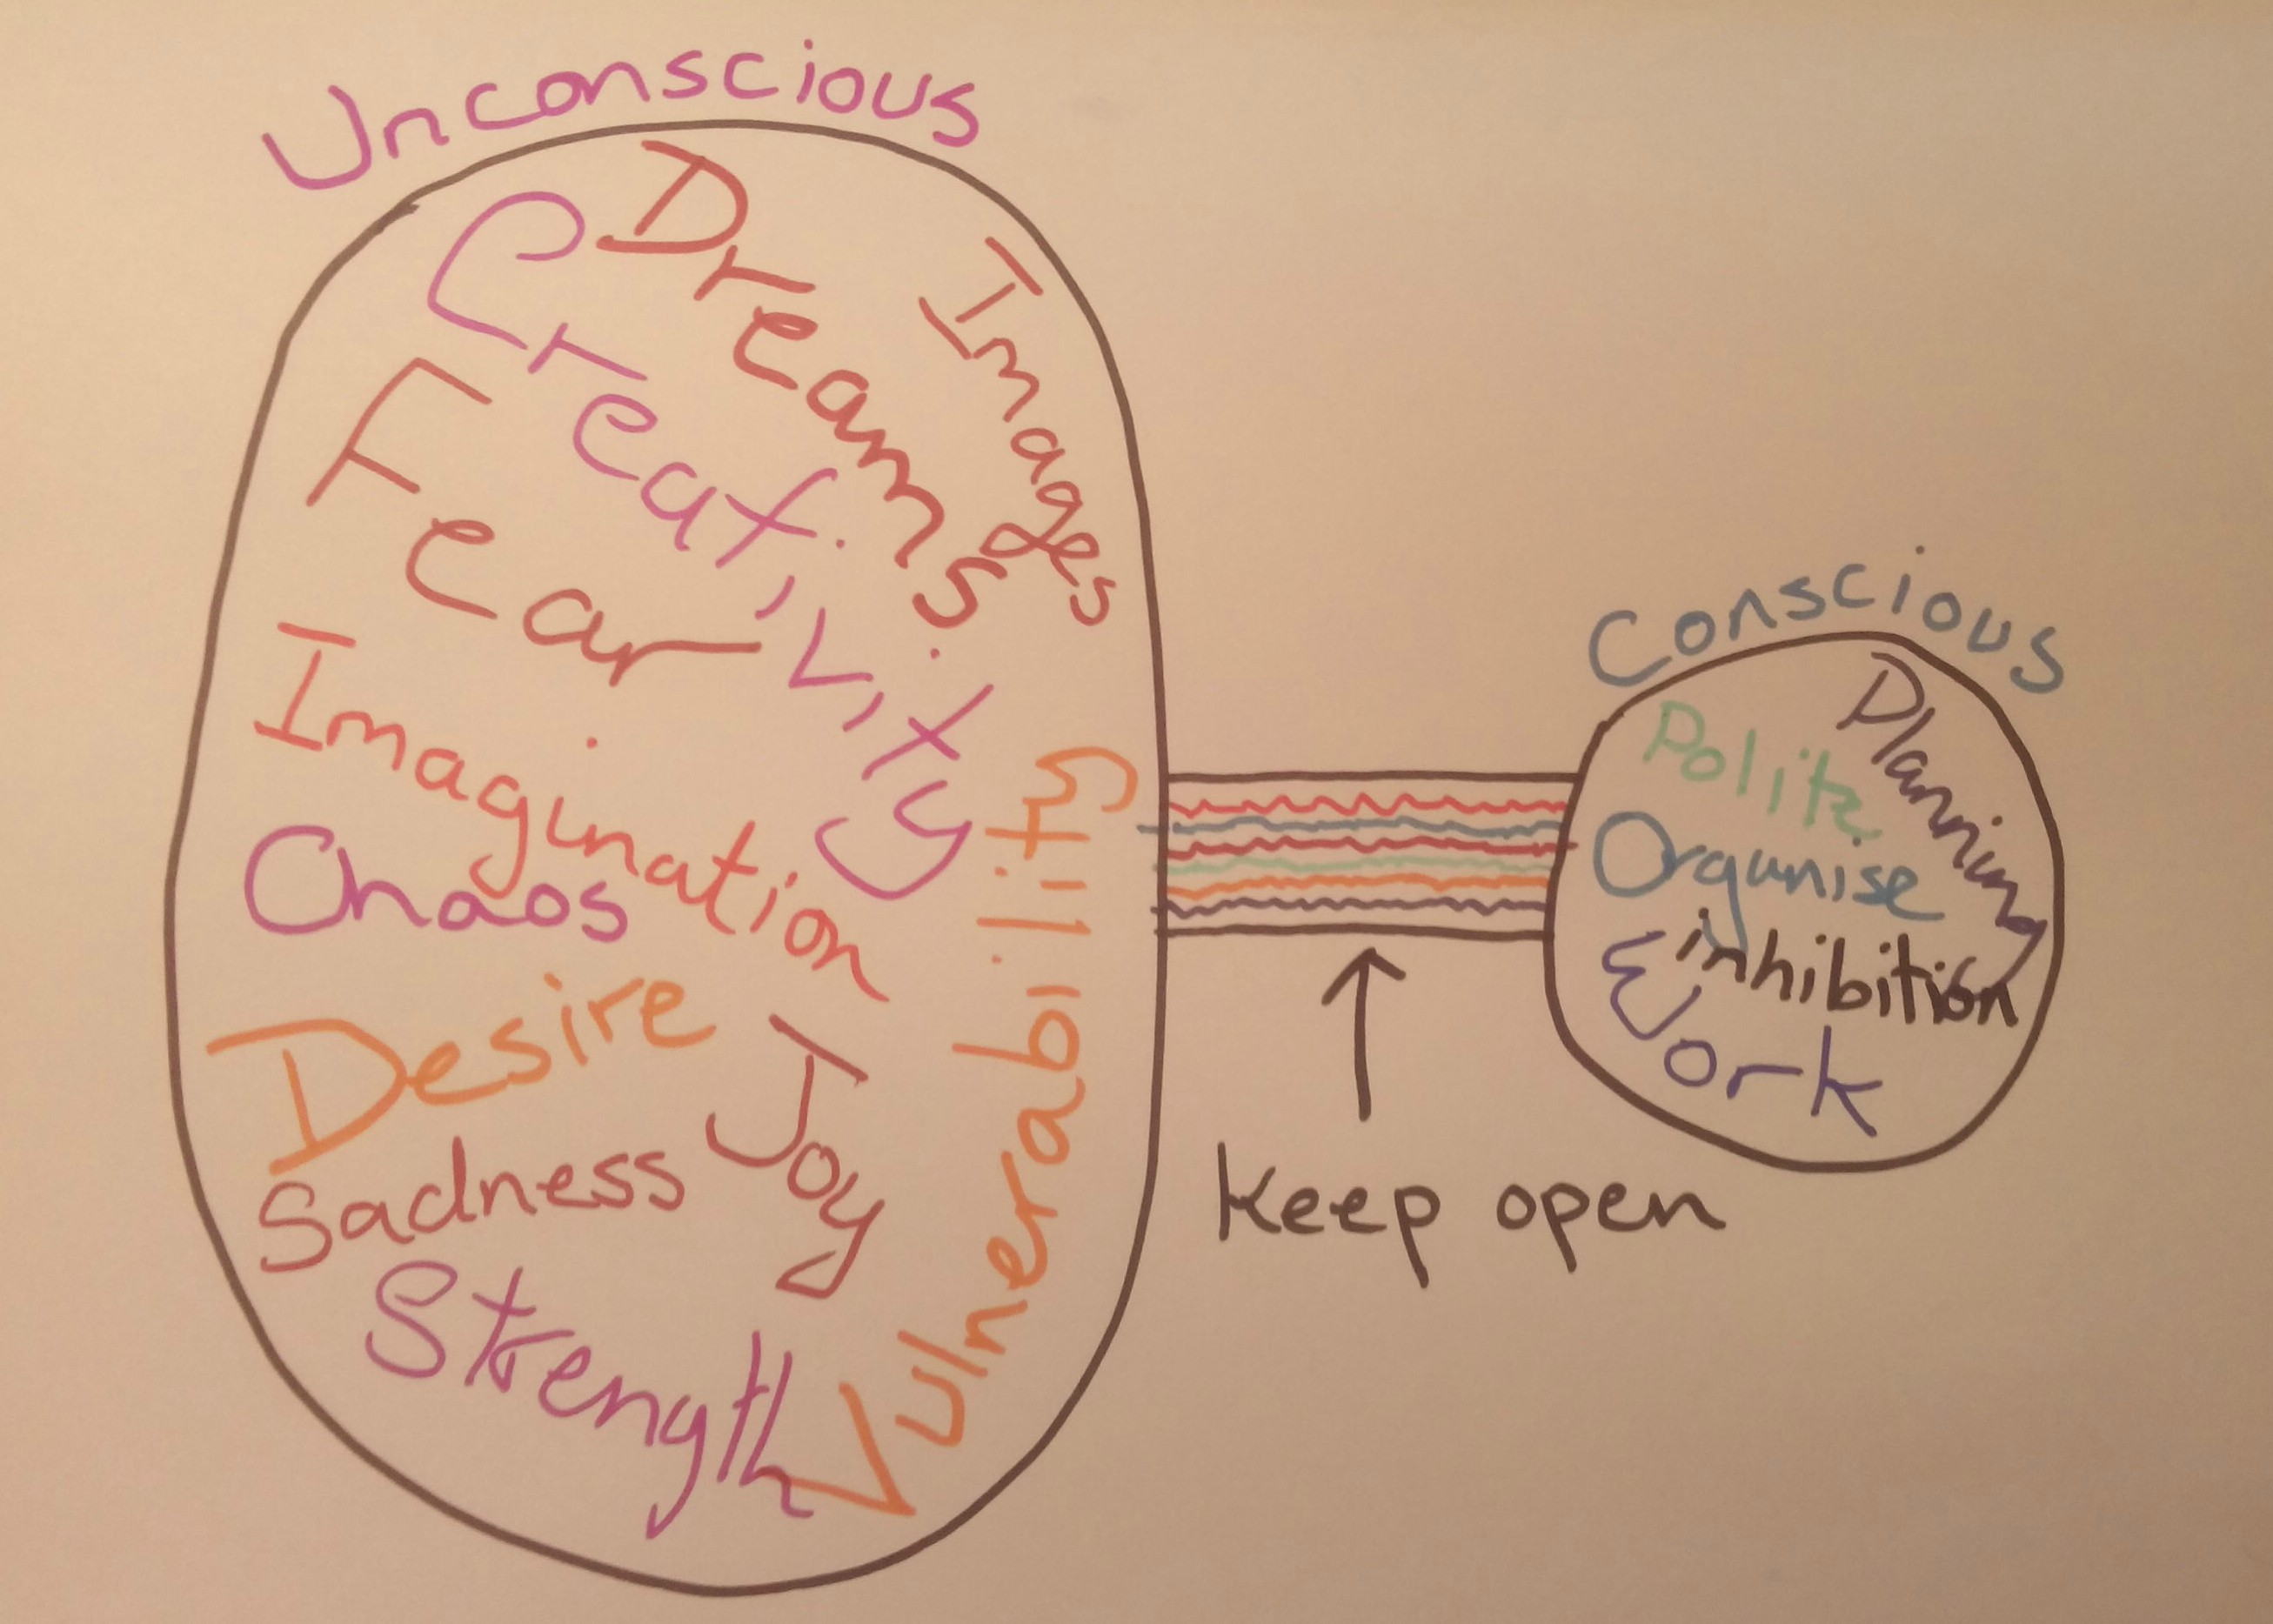 Unconscious
Dreams
Images
Creativity
Fear
Imagination
Chaos
Desire
Joy
Sadness
Strength
Vulnerability
Conscious
Planning
Polite
Organise
inhibition
Work
Keep open